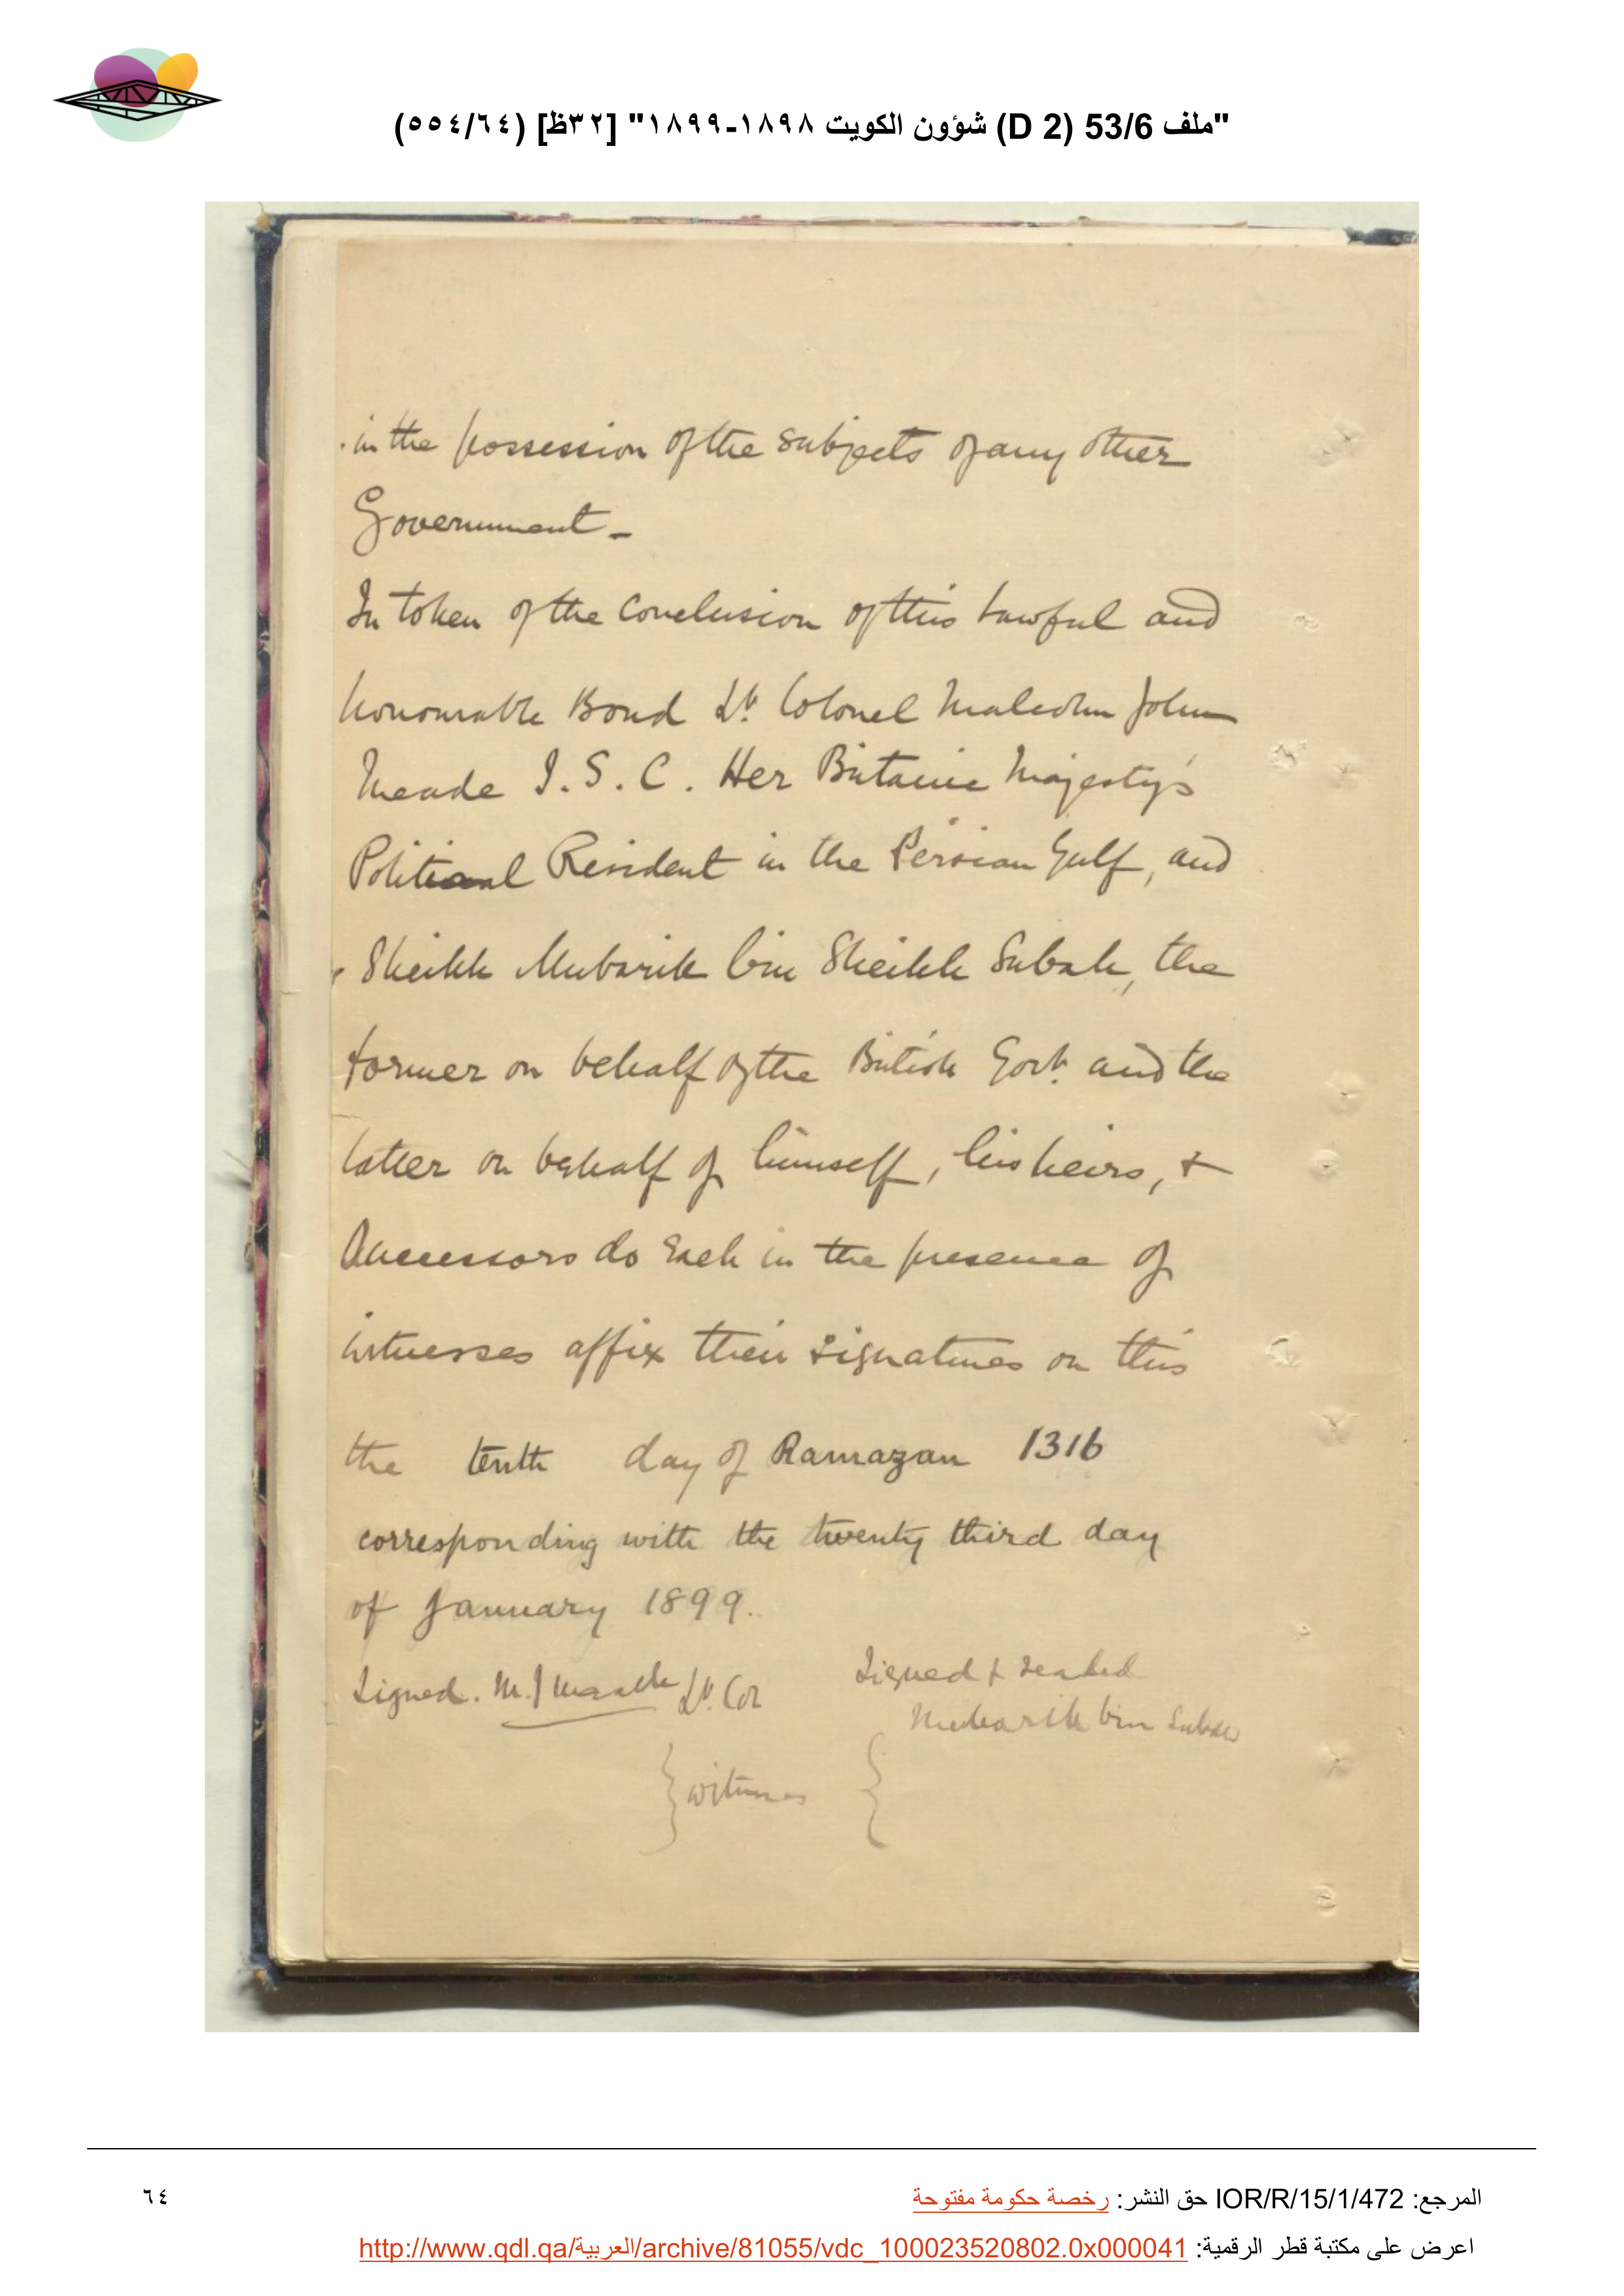 "ملف 53/6 (D 2) شؤون الكويت ١٨٩٨-١٨٩٩" [٣٢ظ] (٥٥٤/٦٤)
in the possession of the subjects of any other
Government -
In token of the conclusion of this lawful and
honourable Bond Lt. Colonel Malcolm John
Meade I. S. C. Her Britannic Majesty's
Political Resident in the Persian Gulf, and
Sheikh Mubarik bin Sheikh Subah, the
former on behalf of the British Govt. and the
latter on behalf of himself, his heirs, +
successors do each in the presence of
witnesses affix their signatures on this
the tenth day of Ramazan 1316
corresponding with the twenty third day
of January 1899.
Signed. M. J Meade Lt. Col
Signed & sealed
Mubarik bin Subah
} witness {
المرجع: IOR/R/15/1/472 حق النشر: رخصة حكومة مفتوحة
٦٤
اعرض على مكتبة قطر الرقمية: http://www.qdl.qa/العربية/archive/81055/vdc_100023520802.0x000041